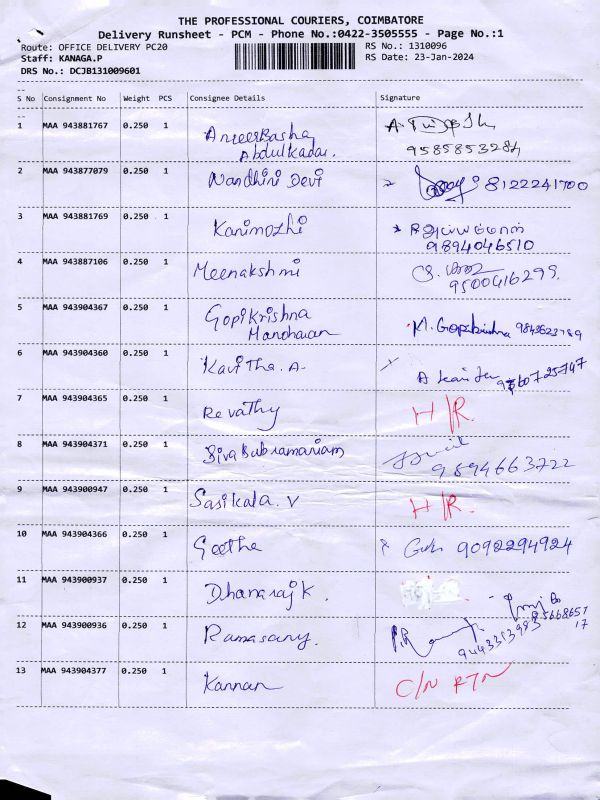 THE PROFESSIONAL COURIERS, COIMBATORE
Delivery Runsheet - PCM - Phone No.:0422-3505555 - Page No.:1
Route: OFFICE DELIVERY PC20
RS No.: 1310096
Staff: KANAGA.P
RS Date: 23-Jan-2024
DRS No.: DCJB131009601
S No Consignment No Weight PCS Consignee Details Signature
1 MAA 943881767 0.250 1 AneesBasha
Abdulkadar.
9585853284
2 MAA 943877079 0.250 1 Nandhini Devi 8122241700
3 MAA 943881769 0.250 1 Kanimozhi
9894046510
4 MAA 943887106 0.250 1 Meenakshmi
9500416299.
5 MAA 943904367 0.250 1 GopiKrishna
Manoharan M. Gopikrishna
6 MAA 943904360 0.250 1 Kavitha. A.
7 MAA 943904365 0.250 1 Revathy H/R.
8 MAA 943904371 0.250 1 SivaSubramaniam
9894663722
9 MAA 943900947 0.250 1 Sasikala. V H/R.
10 MAA 943904366 0.250 1 Geetha 9092294924
11 MAA 943900937 0.250 1 Dhanaraj K.
12 MAA 943900936 0.250 1 Ramasamy.
9443353993
13 MAA 943904377 0.250 1 Kannan C/N RTN